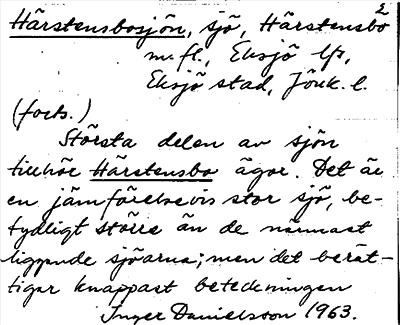 2
Härstensbosjön, sjö, Härstensbo
m.fl., Eksjö lfs,
Eksjö stad, Jönk. l.
(forts.)
Största delen av sjön
tillhör Härstensbo ägor. Det är
en jämförelsevis stor sjö, be-
tydligt större än de närmast
liggande sjöarna; men det berät-
tigar knappast beteckningen
Inger Danielsson 1963.